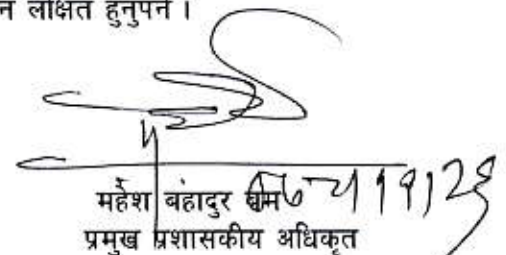 न लक्षित हुनुपर्ने ।
महेश बहादुर
प्रमुख प्रशासकीय अधिकृत